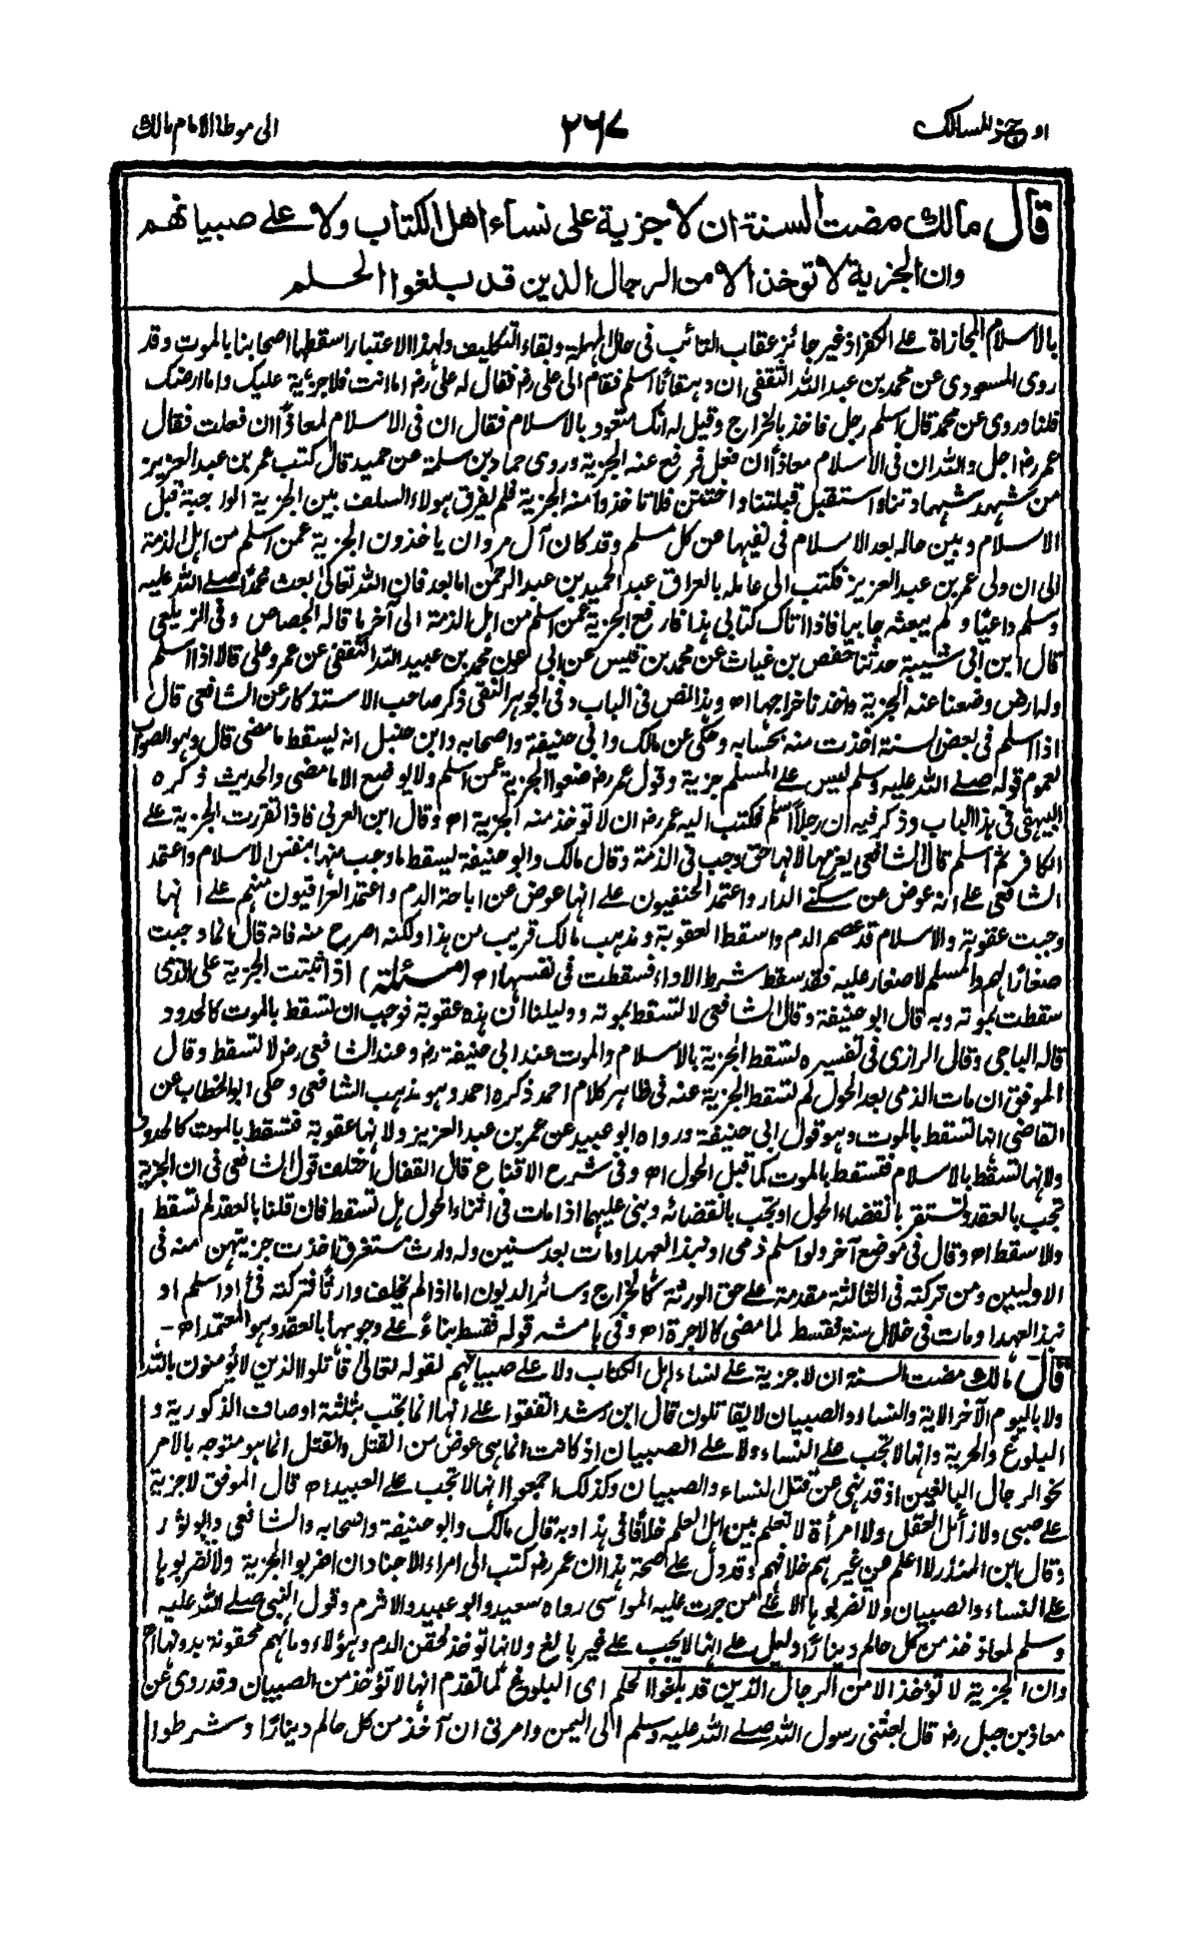 اوجز المسالک
٢٦٧
الى موطا الامام مالك
قال مالك مضت السنة ان لا جزية على نساء اهل الكتاب ولا على صبيانهم
وان الجزية لا توخذ الا من الرجال الذين قد بلغوا الحلم
بالاسلام المجازاة على الكفر اذ غير جائز عقاب التائب فى حال المهلة وبقاء التكليف ولهذا الاعتبار اسقطها اصحابنا بالموت وقد
روى المسعودى عن محمد بن عبد الله الثقفى ان دهقانا اسلم فقام الى على رض فقال له على رض اما انت فلا جزية عليك واما ارضك
فلنا وروى عن محمد قال اسلم رجل فاخذ بالخراج وقيل له انك متعوذ بالاسلام فقال ان فى الاسلام لمعاذًا ان فعلت فقال
عمر رض اجل والله ان فى الاسلام معاذًا ان فعل فرفع عنه الجزية وروى حماد بن سلمة عن حميد قال كتب عمر بن عبد العزيز
من شهد شهادتنا واستقبل قبلتنا واختتن فلا تاخذوا منه الجزية فلم يفرق هولاء السلف بين الجزية الواجبة قبل
الاسلام وبين حاله بعد الاسلام فى نفيها عن كل مسلم وقد كان آل مروان ياخذون الجزية عمن اسلم من اهل الذمة
الى ان ولى عمر بن عبد العزيز فكتب الى عامله بالعراق عبد الحميد بن عبد الرحمن اما بعد فان الله تعالى بعث محمدًا صلے الله عليه
وسلم داعيًا ولم يبعثه جابيا فاذا اتاك كتابى هذا فارفع الجزية عمن اسلم من اهل الذمة الى آخر ما قاله الجصاص وفى الزيلعى
قال ابن ابى شيبة حدثنا حفص بن غياث عن محمد بن قيس عن ابى عون محمد بن عبيد الله الثقفى عن عمر وعلى قالا اذا اسلم
وله ارض وضعنا عنه الجزية واخذنا خراجها اه وهذا نص فى الباب وفى الجوهر النقى ذكر صاحب الاستذكار عن الشافعى قال
اذا اسلم فى بعض السنة اخذت منه بحسابه وحكى عن مالك وابى حنيفة واصحابه وابن حنبل انه يسقط ما مضى قال وهو الصواب
لعموم قوله صلے الله عليه وسلم ليس على المسلم جزية وقول عمر رض ضعوا الجزية عمن اسلم ولا يوضع الا ما مضى والحديث ذكره
البيهقى فى هذا الباب وذكر فيه ان رجلاً اسلم فكتب اليه عمر رض ان لا توخذ منه الجزية اه وقال ابن العربى فاذا تقررت الجزية على
الكافر ثم اسلم قال الشافعى يغرمها لانها حق وجب فى الذمة وقال مالك وابو حنيفة يسقط ما وجب منها بنفس الاسلام واعتمد
الشافعى على انه عوض عن سكنى الدار واعتمد الحنفيون على انها عوض عن اباحة الدم واعتمد العراقيون منهم على انها
وجبت عقوبة والاسلام قد عصم الدم واسقط العقوبة ومذهب مالك قريب من هذا ولكنه اصرح منه فانه قال انما وجبت
صغارًا لهم والمسلم لا صغار عليه فقد سقط شرط الاداء فسقطت فى نفسها اه (مسئلة) اذا ثبتت الجزية على الذمى
سقطت بموته وبه قال ابو حنيفة وقال الشافعى لا تسقط بموته ودليلنا ان هذه عقوبة فوجب ان تسقط بالموت كالحدود
قاله الباجى وقال الرازى فى تفسيره تسقط الجزية بالاسلام والموت عند ابى حنيفة رض وعند الشافعى رض لا تسقط وقال
الموفق ان مات الذمى بعد الحول لم تسقط الجزية عنه فى ظاهر كلام احمد ذكره احمد وهو مذهب الشافعى وحكى ابو الخطاب عن
القاضى انها تسقط بالموت وهو قول ابى حنيفة ورواه ابو عبيد عن عمر بن عبد العزيز ولانها عقوبة فتسقط بالموت كالحدود
ولانها تسقط بالاسلام فتسقط بالموت كما قبل الحول اه وفى شرح الاقناع قال القفال اختلف قول الشافعى فى ان الجزية
تجب بالعقد وتستقر بانقضاء الحول او تجب بانقضائه وبنى عليهما اذا مات فى اثناء الحول هل تسقط فان قلنا بالعقد لم تسقط
والا سقط اه وقال فى موضع آخر ولو اسلم ذمى او نبذ العهد او مات بعد سنين وله وارث مستغرق اخذت جزيتهن منه فى
الاوليين ومن تركته فى الثالثة مقدمة على حق الورثة كالخراج وسائر الديون اما اذا لم يخلف وارثًا فتركته فئ او اسلم او
نبذ العهد او مات فى خلال سنة فقسط لما مضى كالاجرة اه وفى هامشه قوله فقسط بناءً على وجوبها بالعقد وهو المعتمد اه -
قال مالك مضت السنة ان لا جزية على نساء اهل الكتاب ولا على صبيانهم لقوله تعالى قاتلوا الذين لا يؤمنون بالله
ولا باليوم الآخر الاية والنساء والصبيان لا يقاتلون قال ابن رشد اتفقوا على انها انما تجب بثلثة اوصاف الذكورية و
البلوغ والحرية وانها لا تجب على النساء ولا على الصبيان اذ كانت انما هى عوض من القتل والقتل انما هو متوجه بالامر
نحو الرجال البالغين اذ قد نهى عن قتل النساء والصبيان وكذلك اجمعوا انها لا تجب على العبيد اه قال الموفق لا جزية
على صبى ولا زائل العقل ولا امرأة لا نعلم بين اهل العلم خلافًا فى هذا وبه قال مالك وابو حنيفة واصحابه والشافعى وابو ثور
وقال ابن المنذر لا اعلم عن غيرهم خلافهم وقد دل على صحة هذا ان عمر رض كتب الى امراء الاجناد ان اضربوا الجزية ولا تضربوها
على النساء والصبيان ولا تضربوها الا على من جرت عليه المواسى رواه سعيد وابو عبيد والاثرم وقول النبى صلے الله عليه
وسلم لمعاذ خذ من كل حالم دينارًا دليل على انها لا يجب على غير بالغ ولانها توخذ لحقن الدم وهؤلاء دماءهم محقونة بدونها اه
وان الجزية لا تؤخذ الا من الرجال الذين قد بلغوا الحلم اى البلوغ كما تقدم انها لا تؤخذ من الصبيان وقد روى عن
معاذ بن جبل رض قال بعثنى رسول الله صلے الله عليه وسلم الى اليمن وامرنى ان آخذ من كل حالم دينارًا وشرطوا